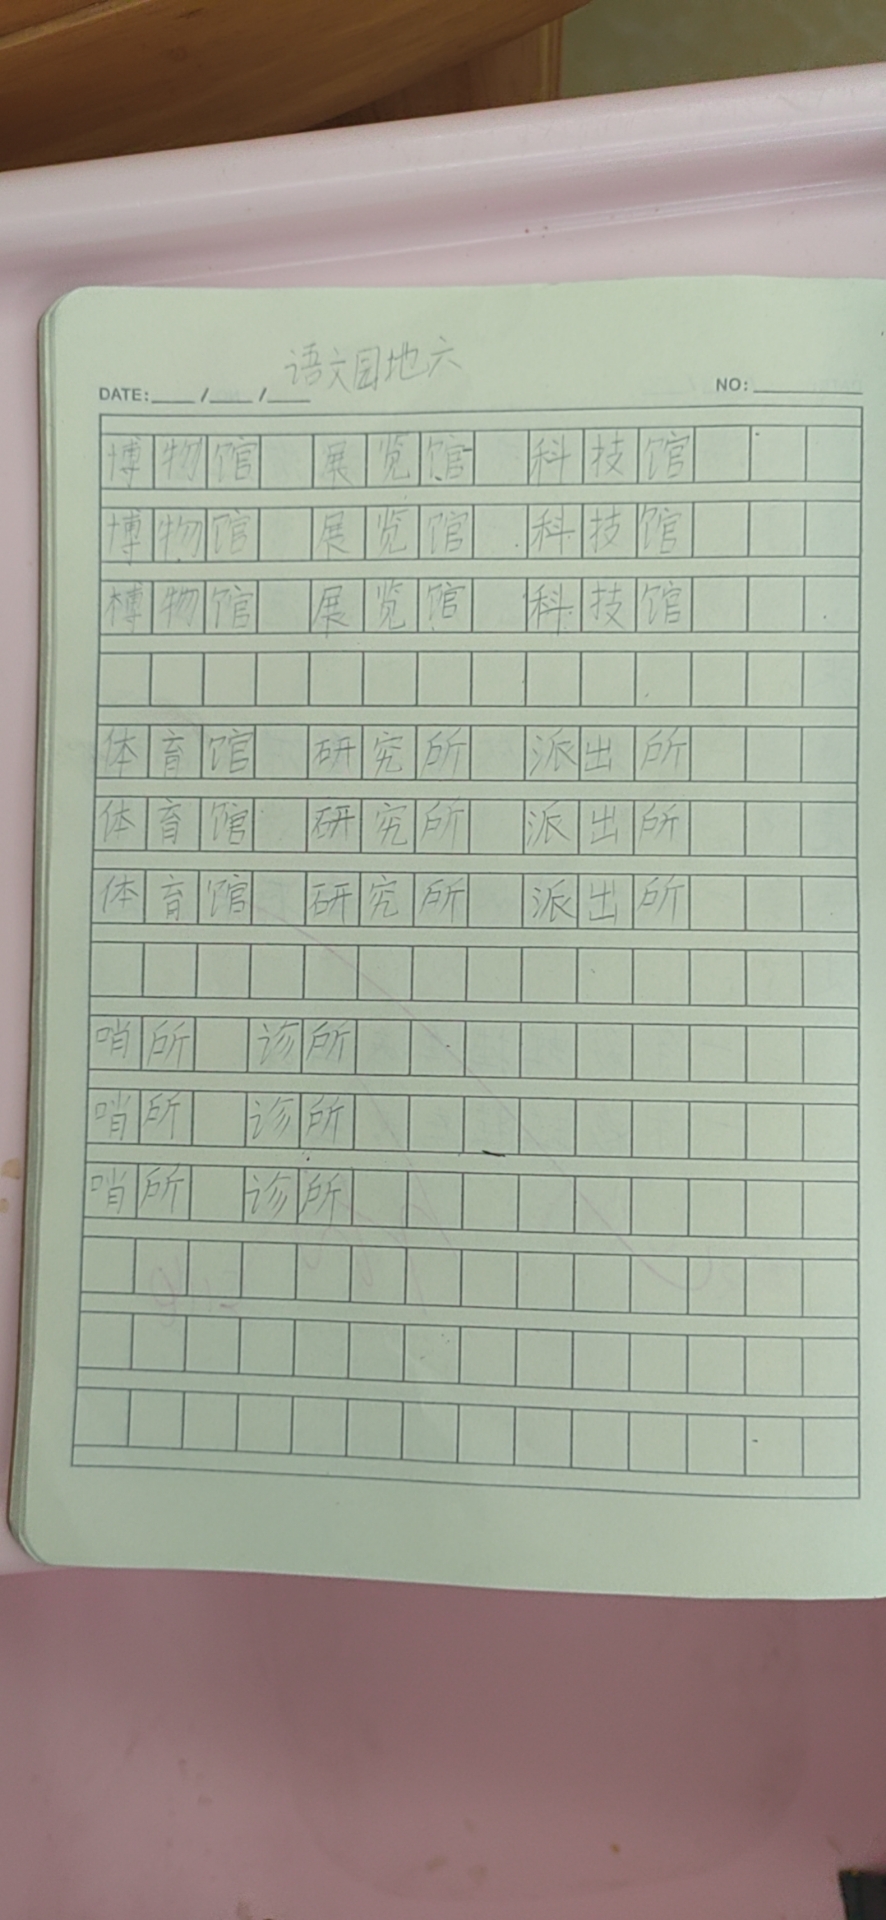 语文园地六
DATE:____/____/____ NO:________
博物馆 展览馆 科技馆
博物馆 展览馆 科技馆
博物馆 展览馆 科技馆
体育馆 研究所 派出所
体育馆 研究所 派出所
体育馆 研究所 派出所
哨所 诊所
哨所 诊所
哨所 诊所